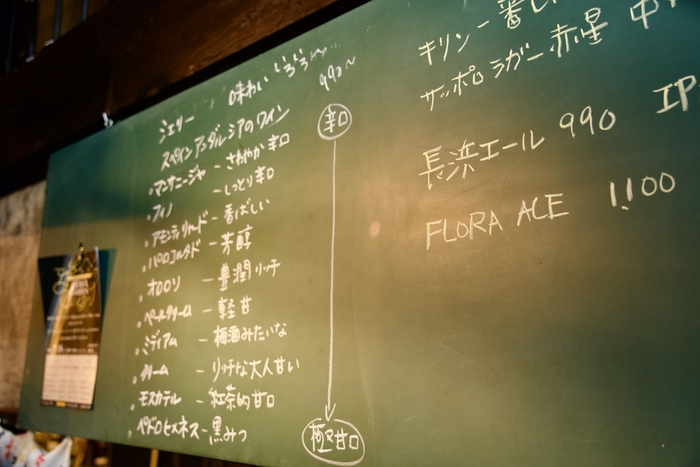 シェリー 味わいいろいろ〜 990〜
スペインアンダルシアのワイン
・マンサニージャ - さわやか辛口
・フィノ - しっとり辛口
・アモンティリャード - 香ばしい
・パロコルタド - 芳醇
・オロロソ - 豊潤リッチ
・ペールクリーム - 軽甘
・ミディアム - 梅酒みたいな
・クリーム - リッチな大人甘い
・モスカテル - 紅茶的甘口
・ペドロヒメネス - 黒みつ
辛口
極甘口
キリン - 番
サッポロラガー 赤星 中
長浜エール 990 IP
FLORA ACE 1,100